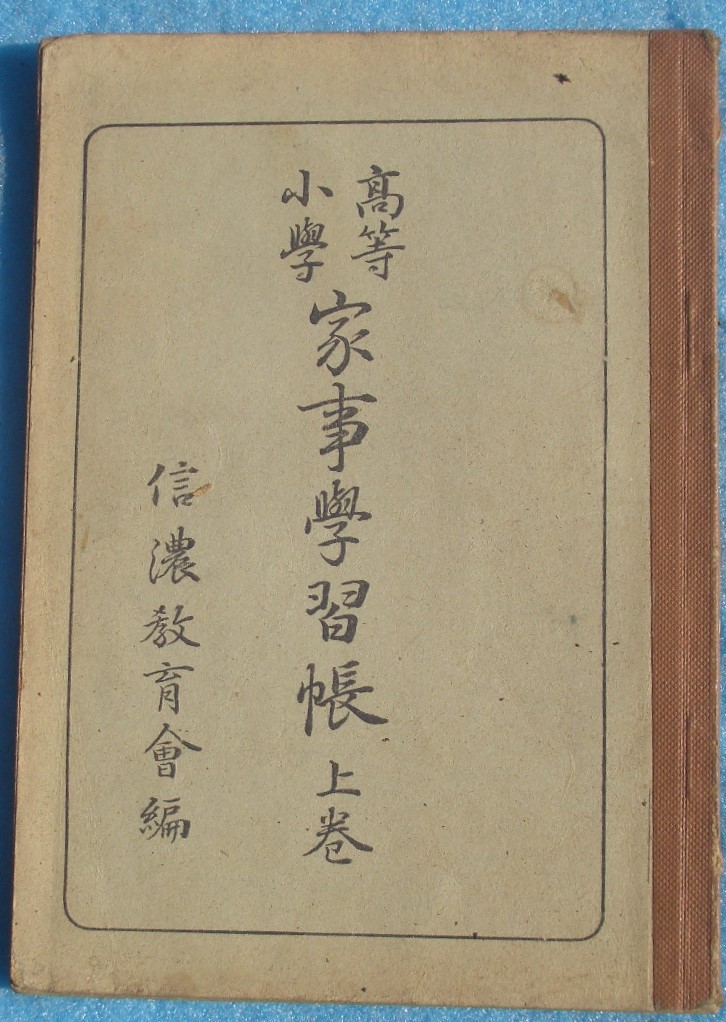 高等
小學
家事學習帳 上卷
信濃教育會編